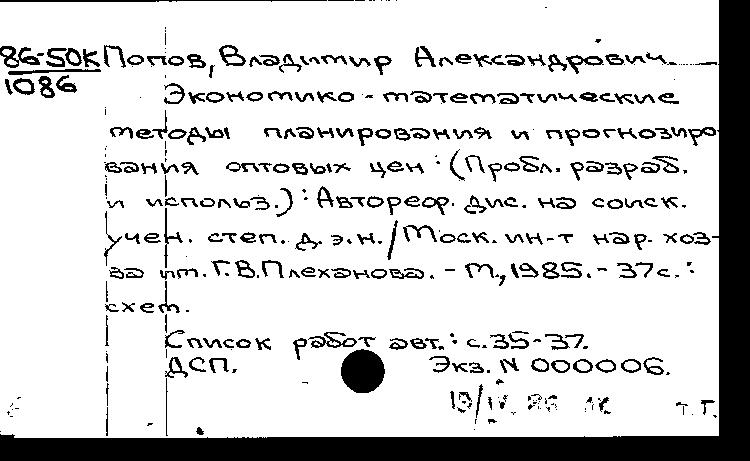 86-50К Попов, Владимир Александрович.
1086
Экономико-математические
методы планирования и прогнозиро-
вания оптовых цен : (Пробл. разраб.
и использ.) : Автореф. дис. на соиск.
учен. степ. д. э. н. / Моск. ин-т нар. хоз-
ва им. Г. В. Плеханова. - М., 1985. - 37 с. :
схем.
Список работ авт. : с. 35-37.
ДСП. Экз. N 000006.
т. Г.